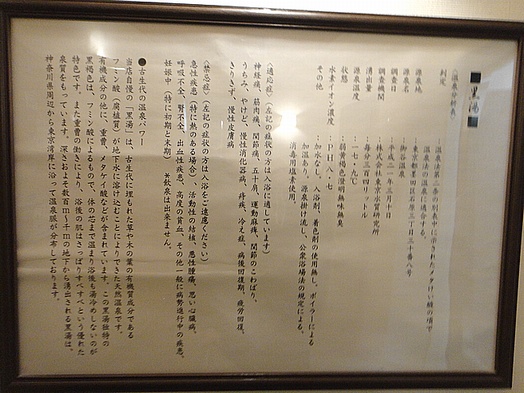 ■黒湯■
〈温泉分析表〉
判定 :温泉法第二条の別表中に示されたメタけい酸の項で
温泉法の温泉に適合する。
源泉地 :東京都墨田区石原三丁目三十番八号
源泉名 :御谷湯
調査日 :平成二一年三月十日
調査機関 :株式会社東京水質研究所
湧出量 :毎分三百四リットル
源泉温度 :一七・九℃
状態 :弱黄褐色澄明無味無臭
水素イオン濃度 :PH八・七
その他 :加水なし、入浴剤、着色剤の使用無し。ボイラーによる
加温あり。源泉掛け流し。公衆浴場法の規定による、
消毒用塩素使用。
〈適応症〉(左記の症状の方は入浴に適しています)
神経痛、筋肉痛、関節痛、五十肩、運動麻痺、関節のこわばり、
うちみ、やけど、慢性消化器病、痔疾、冷え症、病後回復期、疲労回復、
きりきず、慢性皮膚病
〈禁忌症〉(左記の症状の方は入浴をご遠慮ください)
急性疾患(特に熱のある場合)、活動性の結核、悪性腫瘍、思い心臓病、
呼吸不全、腎不全、出血性疾患、高度の貧血、その他一般に病勢進行中の疾患、
妊娠中(特に初期と末期) *飲泉は出来ません。
●古生代の温泉パワー
当店自慢の「黒湯」は、古生代に埋もれた草や木の葉の有機質成分である
フミン酸(腐植質)が地下水に溶け込むことによりできた天然温泉です。
有機成分の他に、重曹、メタケイ酸などが含まれています。この黒湯独特の
黒褐色は、フミン酸によるもので、体の芯まで温まり浴後も湯冷めしないのが
特色です。また重曹の働きにより、浴後の肌はさっぱりすべすべという優れた
泉質をもっています。深さおよそ数百m～千mの地下から湧出される黒湯は、
神奈川県周辺から東京湾岸に沿って温泉脈が分布しております。